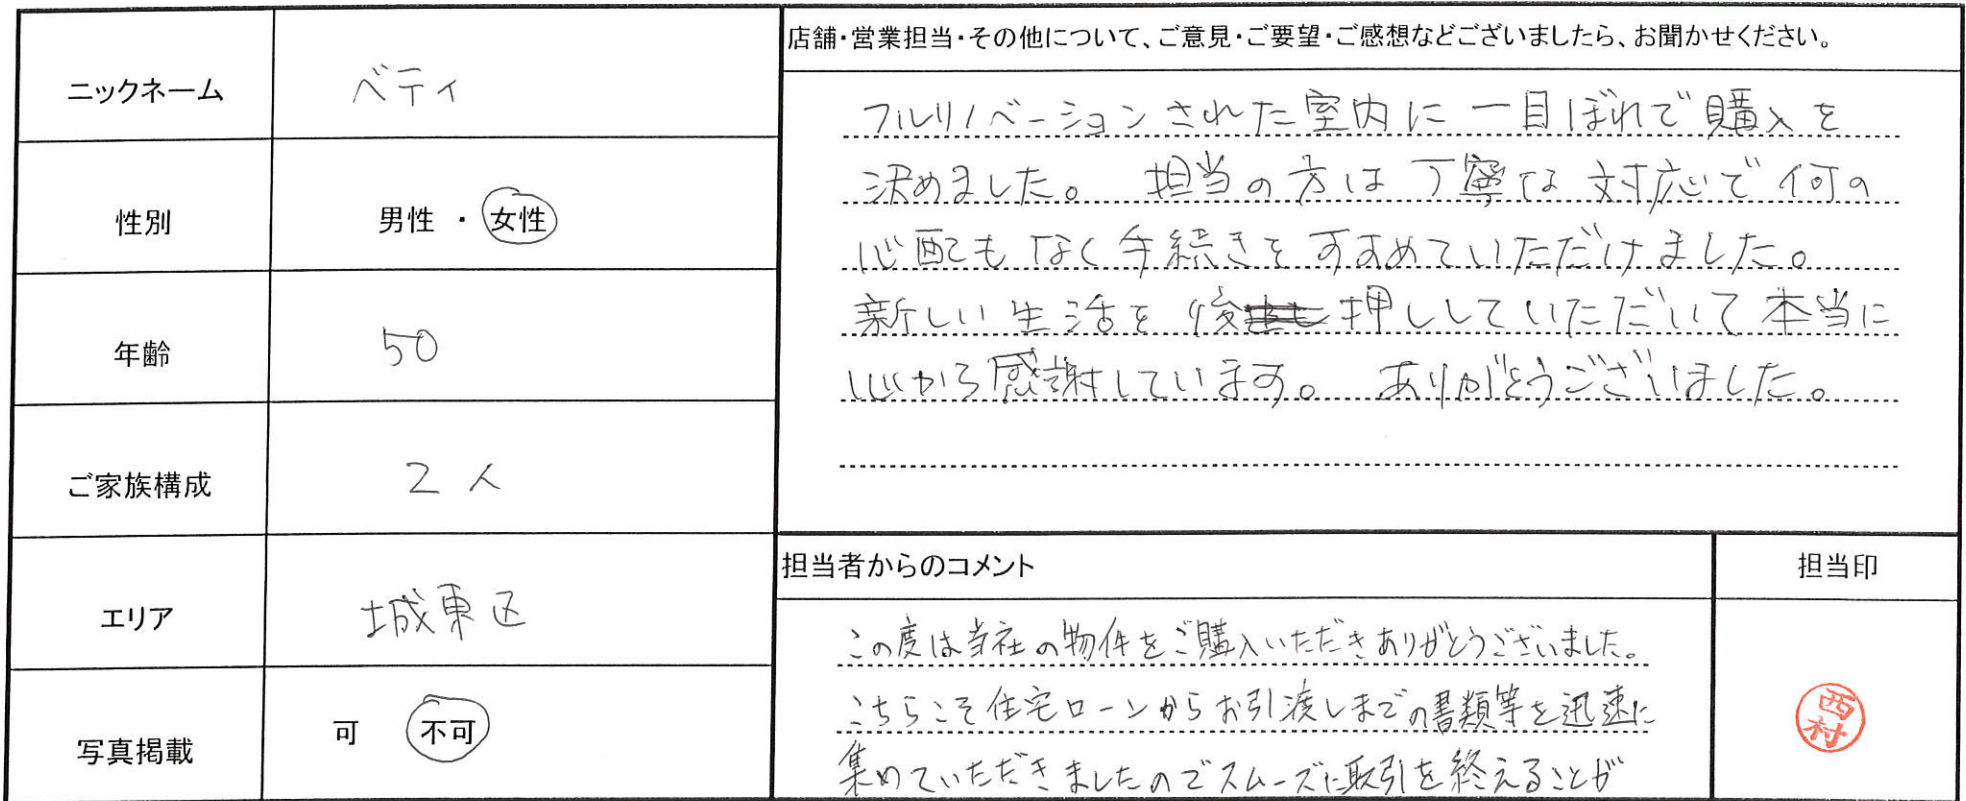 ニックネーム ベティ
性別 男性 ・ 女性
年齢 50
ご家族構成 2人
エリア 城東区
写真掲載 可 不可
店舗・営業担当・その他について、ご意見・ご要望・ご感想などございましたら、お聞かせください。
フルリノベーションされた室内に一目ぼれで購入を
決めました。 担当の方は丁寧な対応で何の
心配もなく手続きをすすめていただけました。
新しい生活を後押ししていただいて本当に
心から感謝しています。 ありがとうございました。
担当者からのコメント
この度は当社の物件をご購入いただきありがとうございました。
こちらこそ住宅ローンからお引渡しまでの書類等を迅速に
集めていただきましたのでスムーズに取引を終えることが
担当印
西村